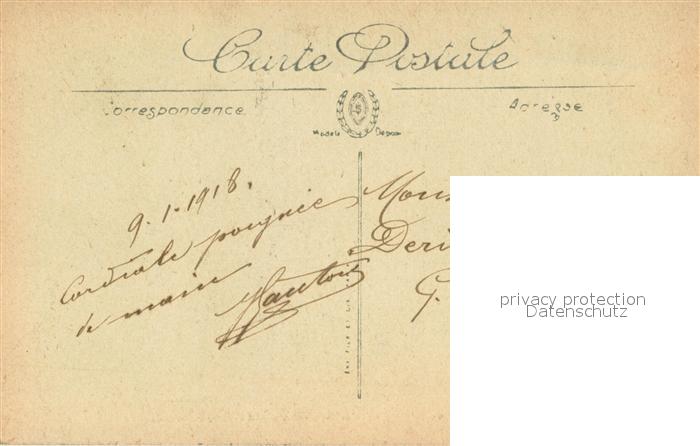 Carte Postale
Correspondance
Adresse
Modèle Déposé
9.1.1918.
Cordiale poignée
de main
Mons
Deri
G.
privacy protection
Datenschutz